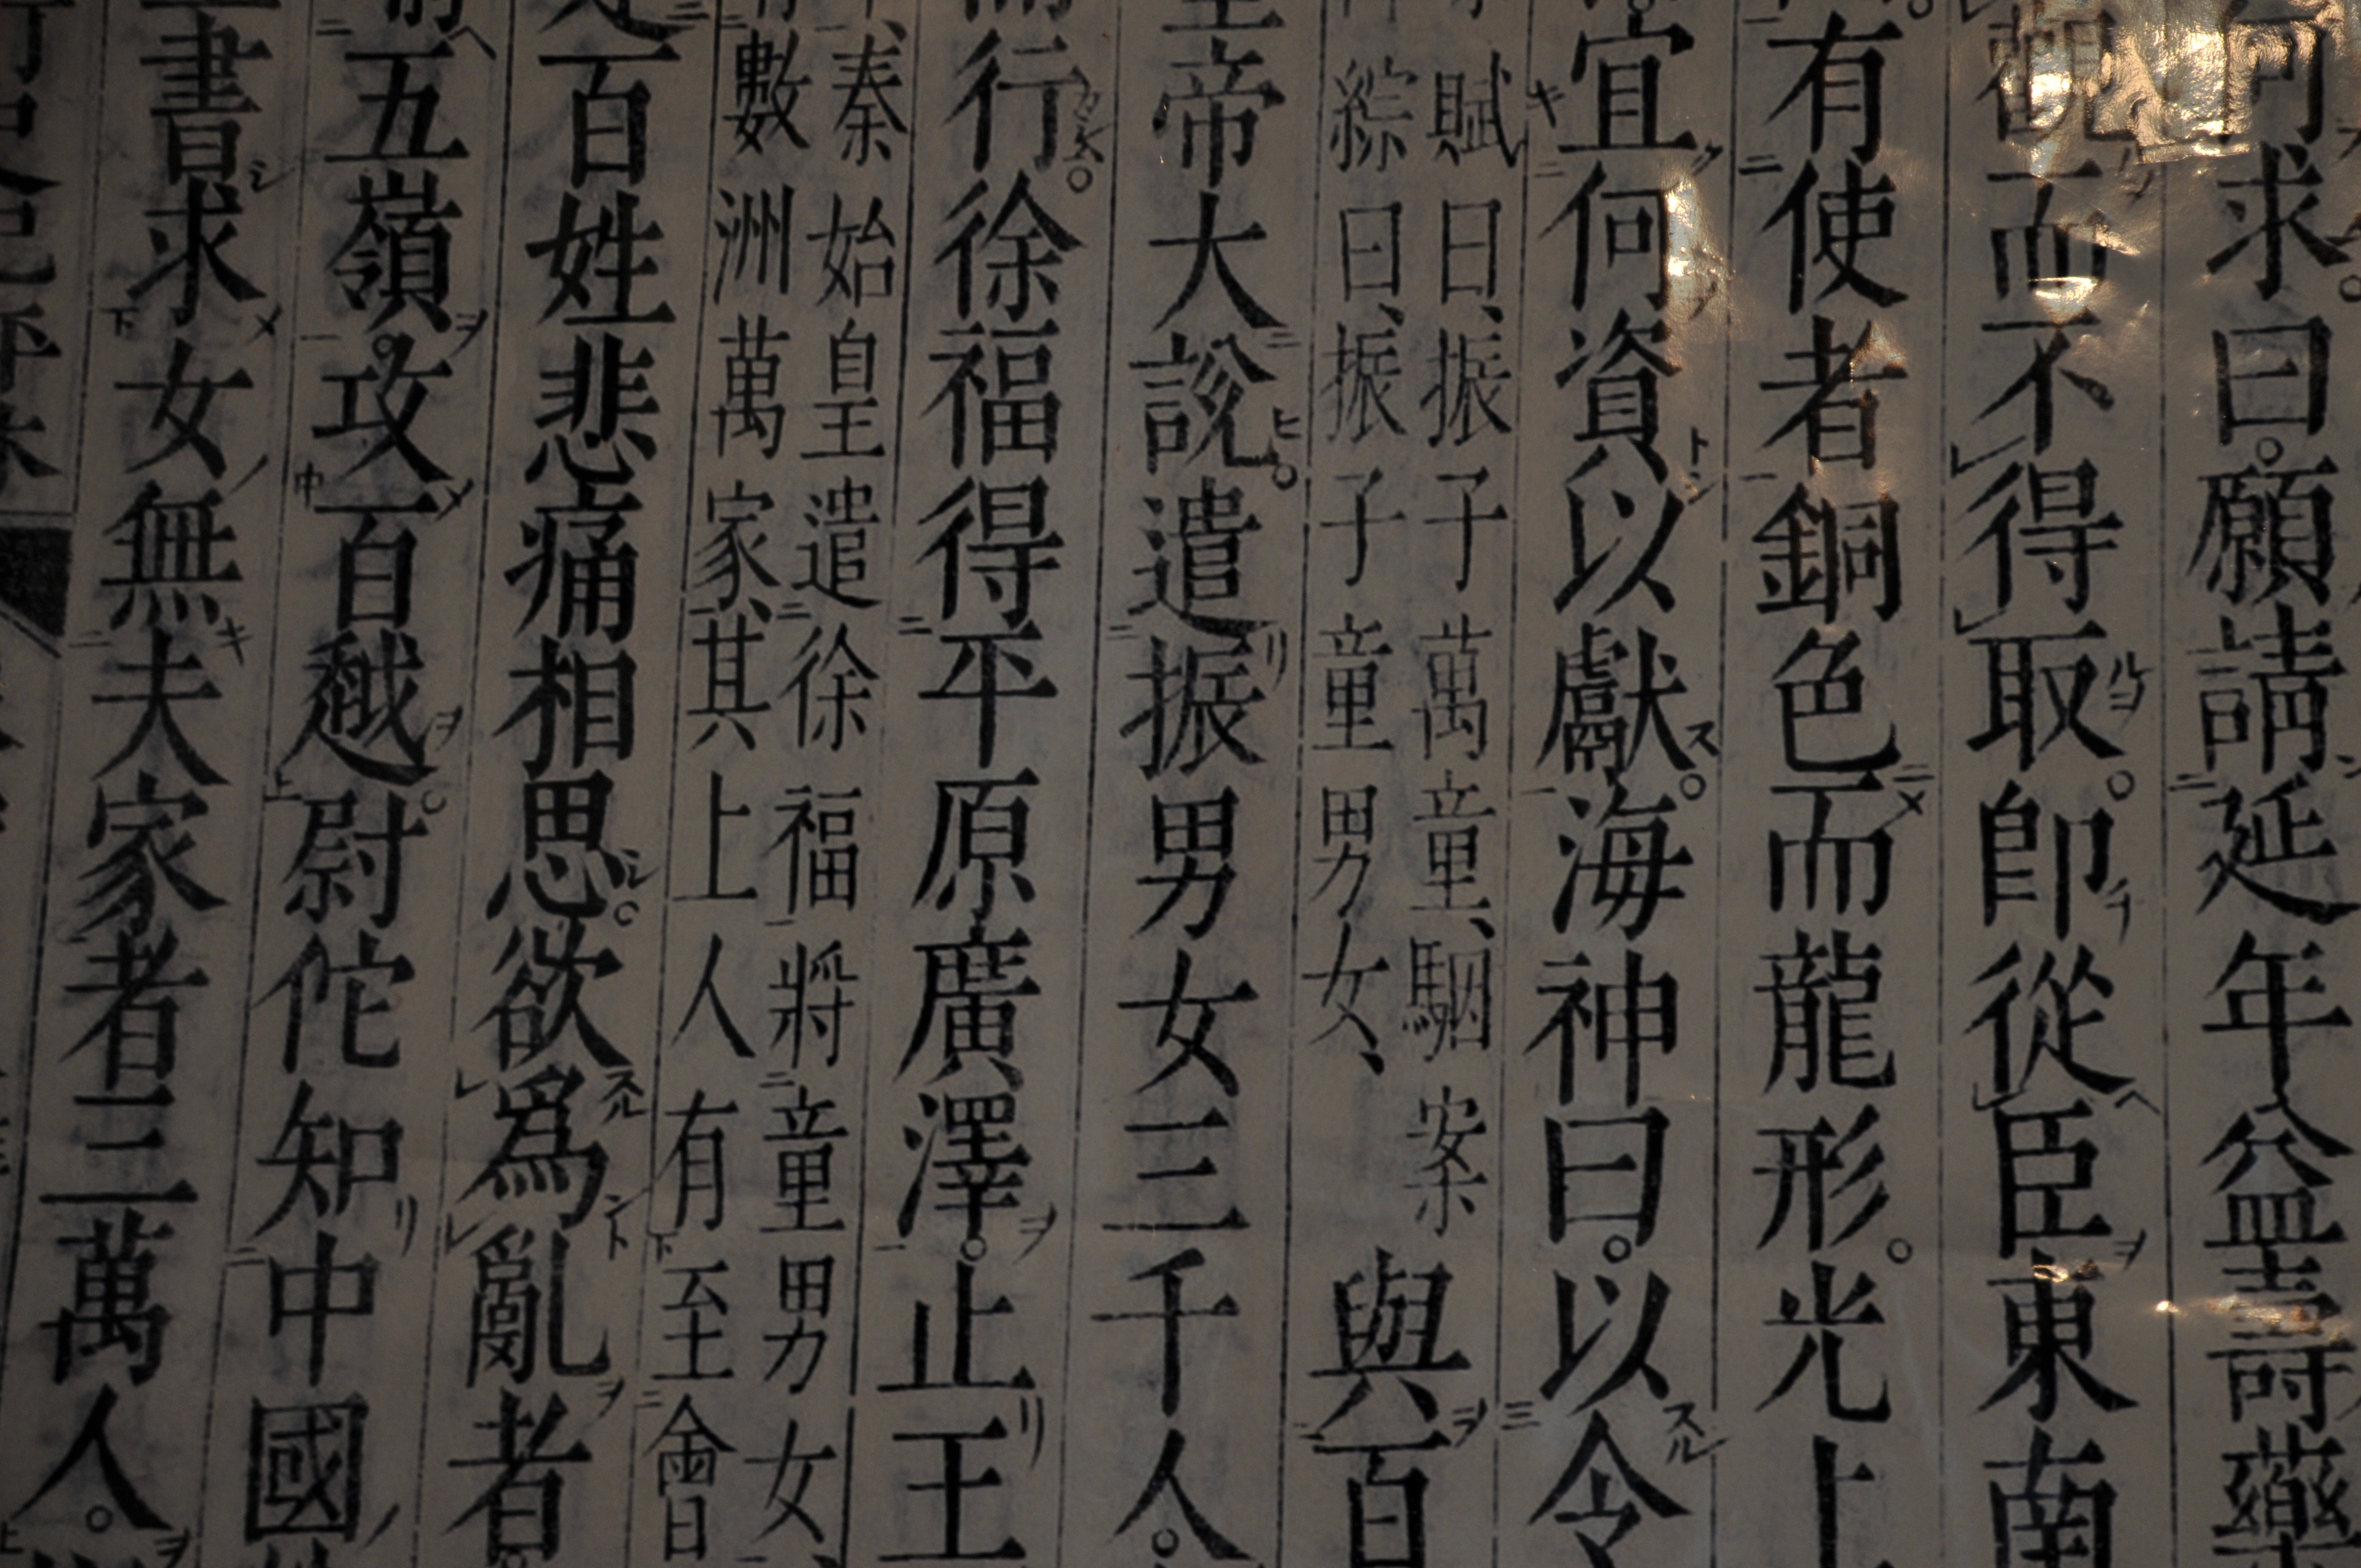 何求。曰。願請延年益壽藥
觀而不得取。卽從臣東南
有使者銅色而龍形。光上
宜何資以獻。海神曰。以令
賦曰、振子萬童、駰案
綜曰、振子童男女、
與百
帝大說。遣振男女三千人。
行。徐福得平原廣澤。止王
秦始皇遣徐福將童男女、
數洲萬家、其上人有至會
百姓悲痛相思。欲爲亂者
五嶺。攻百越。尉佗知中國
書求女無夫家者三萬人。